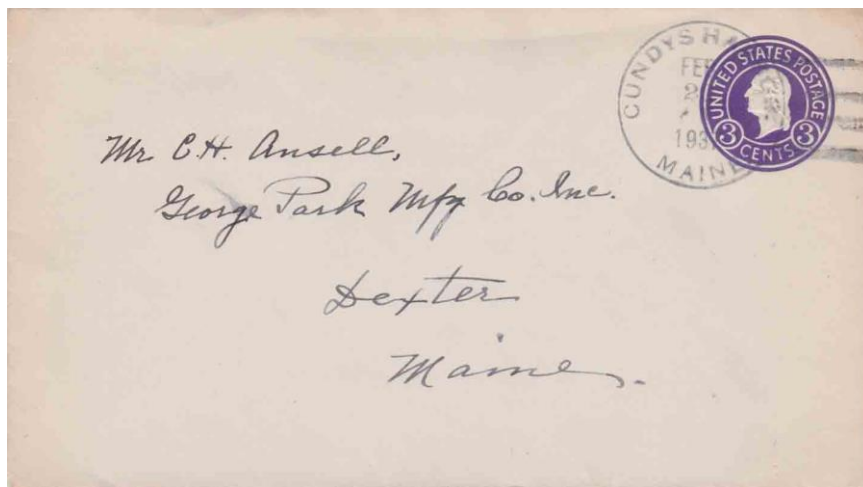 CUNDYS HA
FEB
2
193
MAINE
UNITED STATES POSTAGE
3 CENTS 3
Mr C.H. Ansell,
George Park Mfg Co. Inc.
Dexter
Maine.